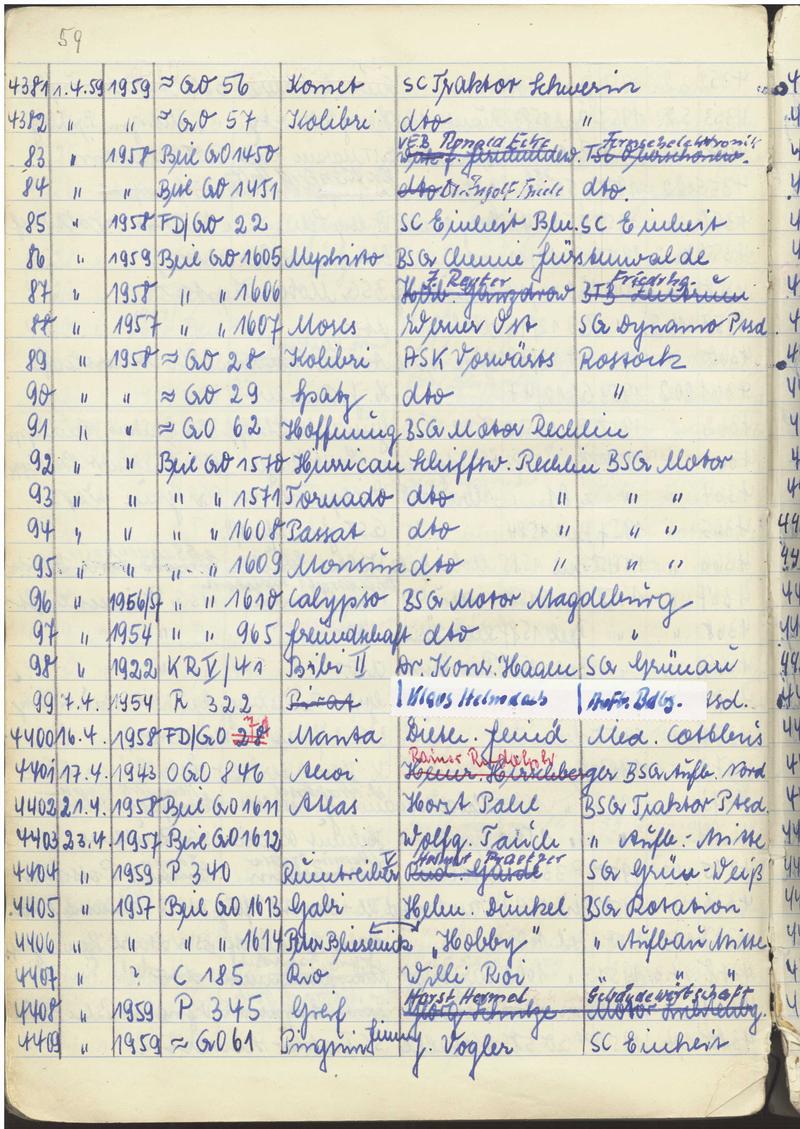 59
4381 1.4.59 1959 ≈ GO 56 Komet SC Traktor Schwerin
4382 " " ≈ GO 57 Kolibri dto "
VEB Ronald Fernsehelektronik
83 " 1958 Beil GO 1450 TSC Oberschönew.
84 " " Beil GO 1451 dto Dr. Ingolf dto.
85 " 1958 FD/GO 22 SC Einheit Bln. SC Einheit
86 " 1959 Beil GO 1605 Mephisto BSG Chemie Fürstenwalde
Reuter Friedrhg.
87 " 1958 " " 1606 Zentrum
88 " 1957 " " 1607 Moses Werner Ost SG Dynamo Ptsd.
89 " 1958 ≈ GO 28 Kolibri ASK Vorwärts Rostock
90 " " ≈ GO 29 Spatz dto "
91 " " ≈ GO 62 Hoffnung BSG Motor Rechlin
92 " " Beil GO 1570 Hurrican Schiffsw. Rechlin BSG Motor
93 " " " " 1571 Tornado dto " " "
94 " " " " 1608 Passat dto " " "
95 " " " " 1609 Monsun dto " " "
96 " 1956/57 " " 1610 Calypso BSG Motor Magdeburg
97 " 1954 " " 965 Freundschaft dto "
98 " 1922 KR V/41 Bibi II Dr. Konr. Hagen SG Grünau
99 7.4. 1954 R 322 Pirat Klaus sd.
4400 16.4. 1958 FD/GO 28 Manta Dieter Feind Med. Cottbus
Rainer
4401 17.4. 1943 OGO 846 Ahoi Heinr. Hirschberger BSG Aufb. Nord
4402 21.4. 1958 Beil GO 1611 Atlas Horst Pahl BSG Traktor Ptsd.
4403 23.4. 1957 Beil GO 1612 Wolfg. Tauch " Aufb.-Mitte
Helmut Praetzer
4404 " 1959 P 340 Rumtreiber V Rud. SG Grün-Weiß
4405 " 1957 Beil GO 1613 Gabi Helm. Dunkel BSG Rotation
4406 " " " " 1614 Peter "Hobby" " Aufbau Mitte
4407 " ? C 185 Rio Willi Roi " " "
Horst Hermel, Gebäudewirtschaft
4408 " 1959 P 345 Greif Georg Schulze Motor
4409 " 1959 ≈ GO 61 Pinguin J. Vogler SC Einheit